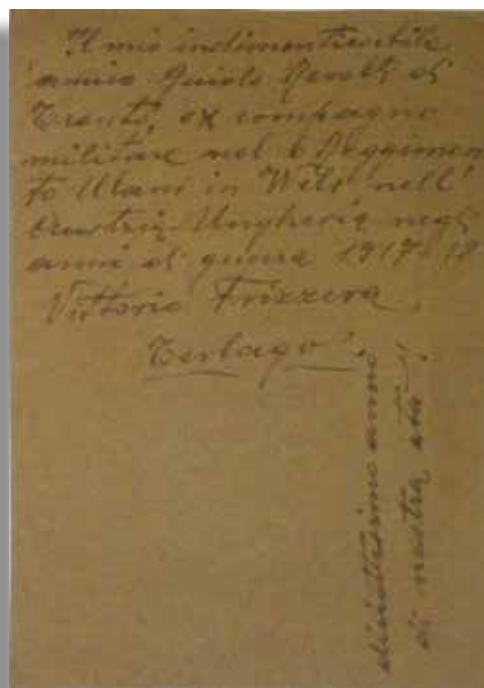 Il mio indimenticabile
amico Guido Revolti di
Trento, ex compagno
militare nel 6 Reggimen
to Ulani in Wels nell'
Austria Ungheria negli
anni di guerra 1917-18
Vittorio Frizzera
Terlago
diciottesimo anno
di nostra età